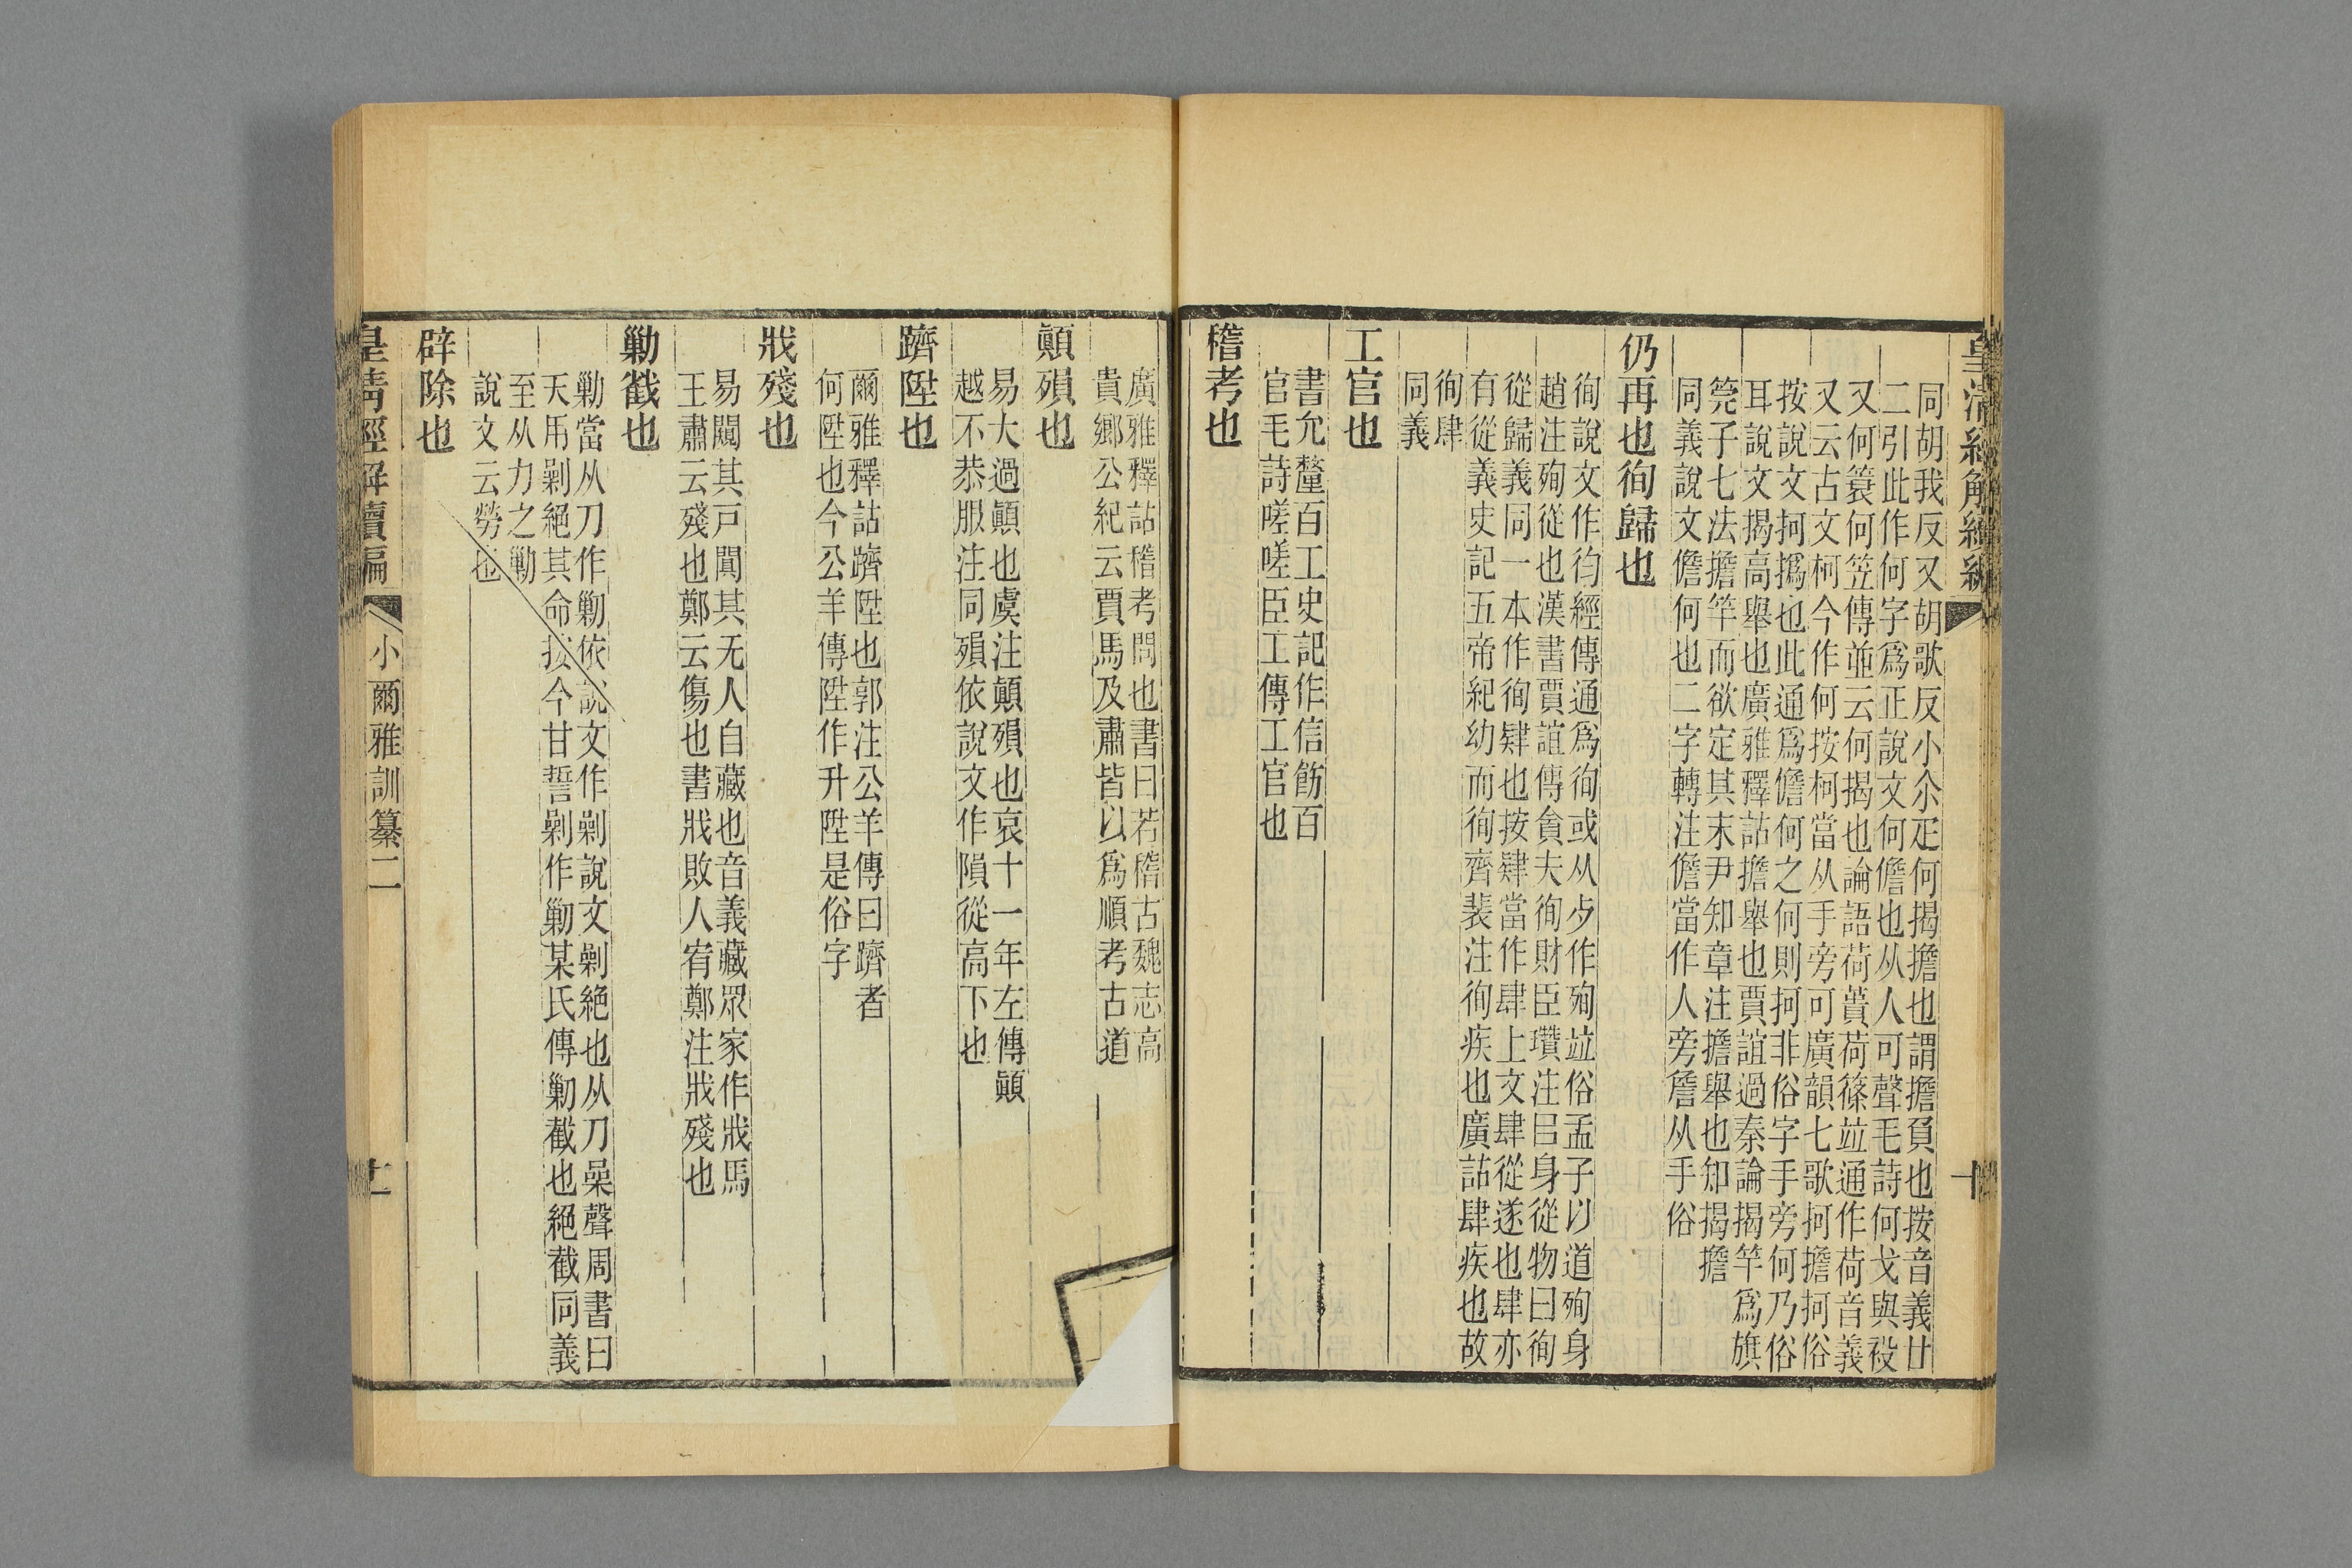 同胡我反又胡歌反小尒疋何揭擔也謂擔負也按音義廿
二引此作何字爲正說文何儋也从人可聲毛詩何戈與祋
又何蓑何笠傳並云何揭也論語荷蕢荷篠竝通作荷音義
又云古文柯今作何按柯當从手旁可廣韻七歌抲擔抲俗
按說文抲撝也此通爲儋何之何則抲非俗字手旁何乃俗
耳說文揭高舉也廣雅釋詁擔舉也賈誼過秦論揭竿爲旗
筦子七法擔竿而欲定其末尹知章注擔舉也知揭擔
同義說文儋何也二字轉注儋當作人旁詹从手俗
仍再也徇歸也
徇說文作徇經傳通爲徇或从歺作殉竝俗孟子以道殉身
趙注殉從也漢書賈誼傳貪夫徇財臣瓚注㠯身從物曰徇
從歸義同一本作徇肄也按肄當作肆上文肆從遂也肆亦
有從義史記五帝紀幼而徇齊裴注徇疾也廣詁肆疾也故
徇肆
同義
工官也
書允釐百工史記作信飭百
官毛詩嗟嗟臣工傳工官也
稽考也
皇清經解續編
十
廣雅釋詁稽考問也書曰若稽古魏志高
貴鄉公紀云賈馬及肅皆以爲順考古道
顚殞也
易大過顚也虞注顚殞也哀十一年左傳顚
越不恭服注同殞依說文作隕從高下也
躋陞也
爾雅釋詁躋陞也郭注公羊傳曰躋者
何陞也今公羊傳陞作升陞是俗字
戕殘也
易闚其戸闃其无人自藏也音義藏眾家作戕馬
王肅云殘也鄭云傷也書戕敗人宥鄭注戕殘也
勦截也
勦當从刀作勦依說文作剿說文剿絕也从刀喿聲周書曰
天用剿絕其命按今甘誓剿作勦某氏傳勦截也絕截同義
至从力之勦
說文云勞也
辟除也
皇清經解續編
小爾雅訓纂二
十一